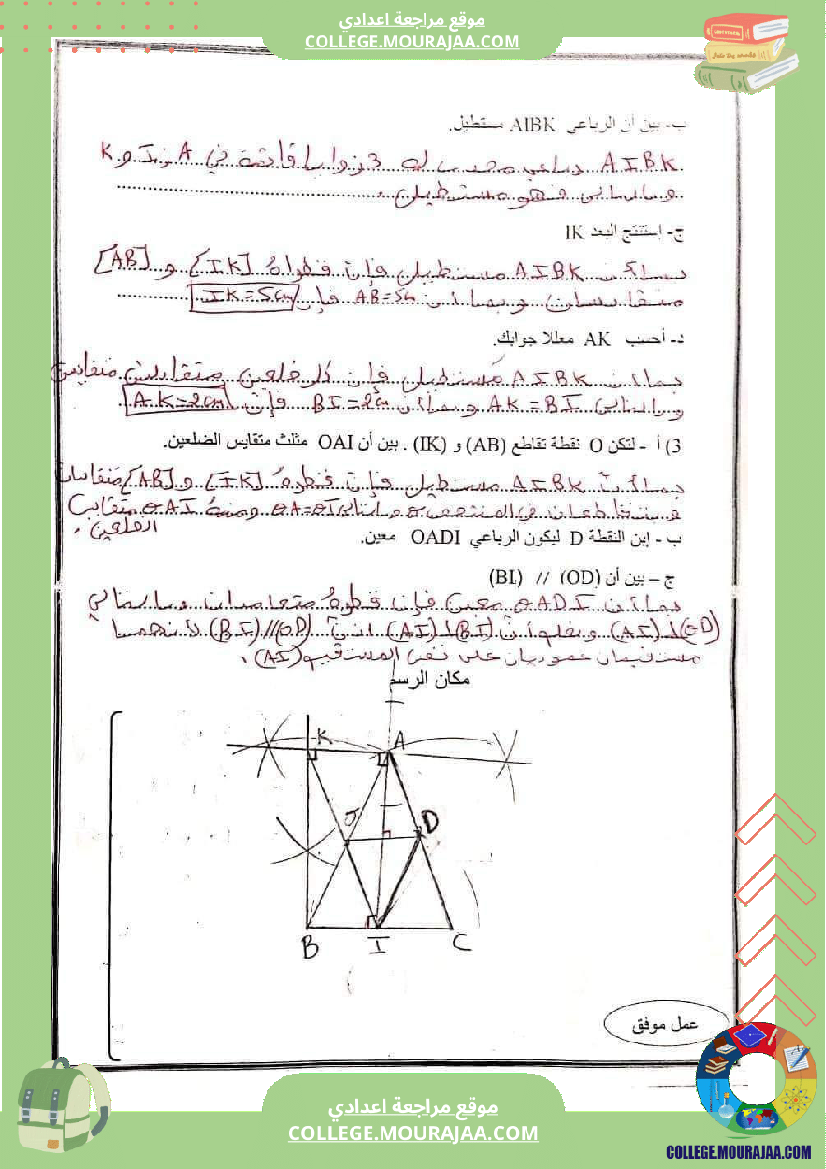 موقع مراجعة اعدادي
COLLEGE.MOURAJAA.COM
ب- بين أن الرباعي AIBK مستطيل.
AIBK رباعي محدب له 3 زوايا قائمة في A و I و K
وبالتالي فهو مستطيل.
ج- إستنتج البعد IK
بما أن AIBK مستطيل فإن قطراه [IK] و [AB]
متقايسان وبما أن AB=5cm فإن IK=5cm
د- أحسب AK معللا جوابك.
بما أن AIBK مستطيل فإن كل ضلعين متقابلين متقايسين
وبالتالي AK=BI وبما أن BI=2cm فإن AK=2cm.
3) أ - لتكن O نقطة تقاطع (AB) و (IK) . بين أن OAI مثلث متقايس الضلعين.
بما أن AIBK مستطيل فإن قطراه [IK] و [AB] متقايسان
ويتقاطعان في المنتصف O وبالتالي OA=OI ومنه OAI متقايس
الضلعين.
ب - إبن النقطة D ليكون الرباعي OADI معين.
ج – بين أن (OD) // (BI)
بما أن OADI معين فإن قطراه متعامدان وبالتالي
(OD)⊥(AI) ونعلم أن (BI)⊥(AI) اذن (OD)//(BI) لأنهما
مستقيمان عموديان على نفس المستقيم (AI).
مكان الرسم
K
A
O
D
B
I
C
عمل موفق
موقع مراجعة اعدادي
COLLEGE.MOURAJAA.COM
COLLEGE.MOURAJAA.COM